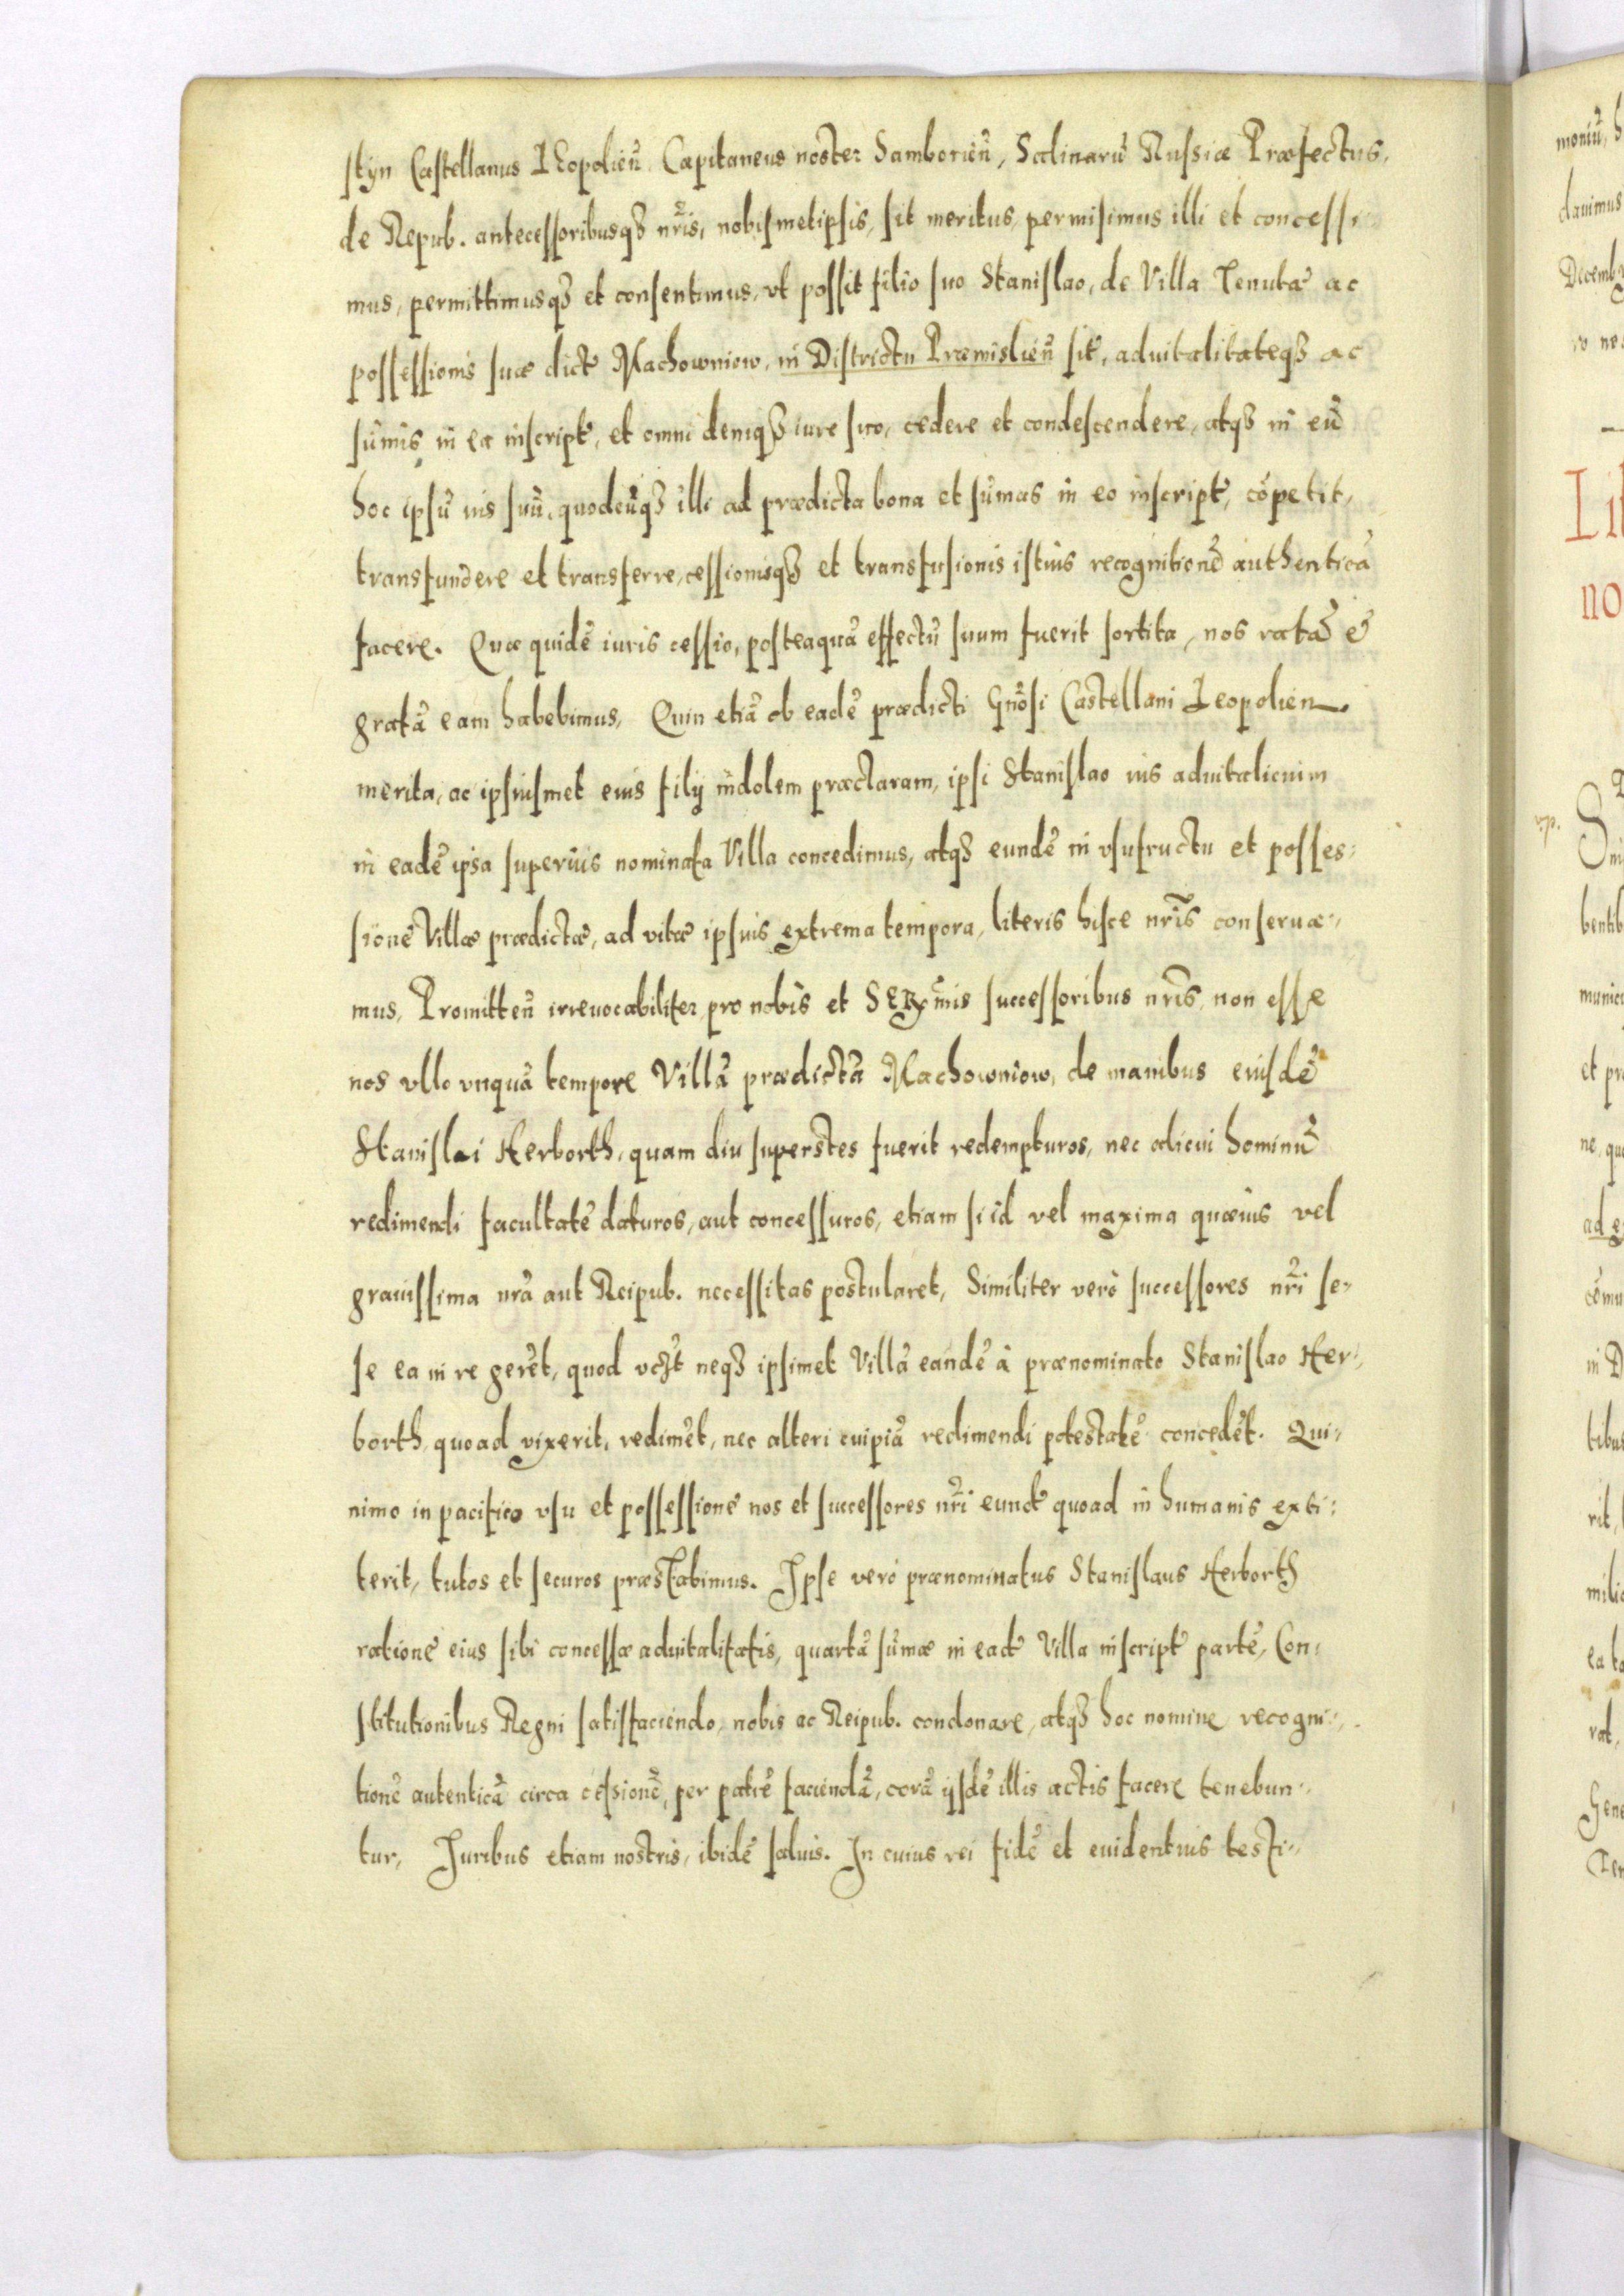 styn Castellanus LEopolieñ. Capitaneus noster Samborieñ, Salinarũ Russiæ Præfectus,
de Repub. antecessoribusqȝ nr̃is, nobismetipsis, sit meritus, permisimus illi et concessi-
mus, permittimusqȝ et consentimus, vt possit filio suo Stanislao, de Villa Tenutæ ac
possessionis suæ dict̃ Machowniow, in Districtu Præmislieñ sit̃, aduitalitateqȝ ac
sũmis in ea inscript̃, et omni deniqȝ iure suo, cedere et condescendere, atqȝ in eũ
hoc ipsũ ius suũ, quodcũqȝ illi ad prædicta bona et sũmas in eo inscript̃, cõpetit,
transfundere et transferre, cessionisqȝ et transfusionis istius recognitionẽ authenticã
facere. Quæ quidẽ iuris cessio, posteaquã effectũ suum fuerit sortita, nos ratã &
gratã eam habebimus, Quin etiã ob eadẽ prædicti Gñosi Castellani Leopolien.
merita, ac ipsiusmet eius filij indolem præclaram, ipsi Stanislao ius aduitalicium
in eadẽ ipsa superius nominata Villa concedimus, atqȝ eundẽ in vsufructu et posses-
sionẽ Villæ prædictæ, ad vitæ ipsius extrema tempora, literis hisce nr̃is conserua-
mus, Promitteñ irreuocabiliter, pro nobis et SERmis successoribus nr̃is, non esse
nos vllo vnquã tempore Villã prædictã Machowniow, de manibus eiusdẽ
Stanislai Herborth, quam diu superstes fuerit redempturos, nec alicui hominũ
redimendi facultatẽ daturos, aut concessuros, etiam si id vel maxima quæuis vel
grauissima nr̃a aut Reipub. necessitas postularet, Similiter verò successores nr̃i se-
se ea in re gerẽt, quod vcȝt neqȝ ipsimet Villã eandẽ à prænominato Stanislao Her-
borth, quoad vixerit, redimẽt, nec alteri cuipiã redimendi potestatẽ concedẽt. Qui-
nimo in pacifico vsu et possessionẽ nos et successores nr̃i eund̃ quoad in humanis exti-
terit, tutos et securos præstabimus. Ipse verò prænominatus Stanislaus Herborth
rationẽ eius sibi concessæ aduitalitatis, quartã sũmæ in ead̃ Villa inscript̃ partẽ, Con-
stitutionibus Regni satisfaciendo, nobis ac Reipub. condonare, atqȝ hoc nomine recogni-
tionẽ autenticã circa cessionẽ, per patrẽ faciendã, corã ijsdẽ illis actis facere tenebun-
tur, Iuribus etiam nostris, ibidẽ saluis. In cuius rei fidẽ et euidentius testi-